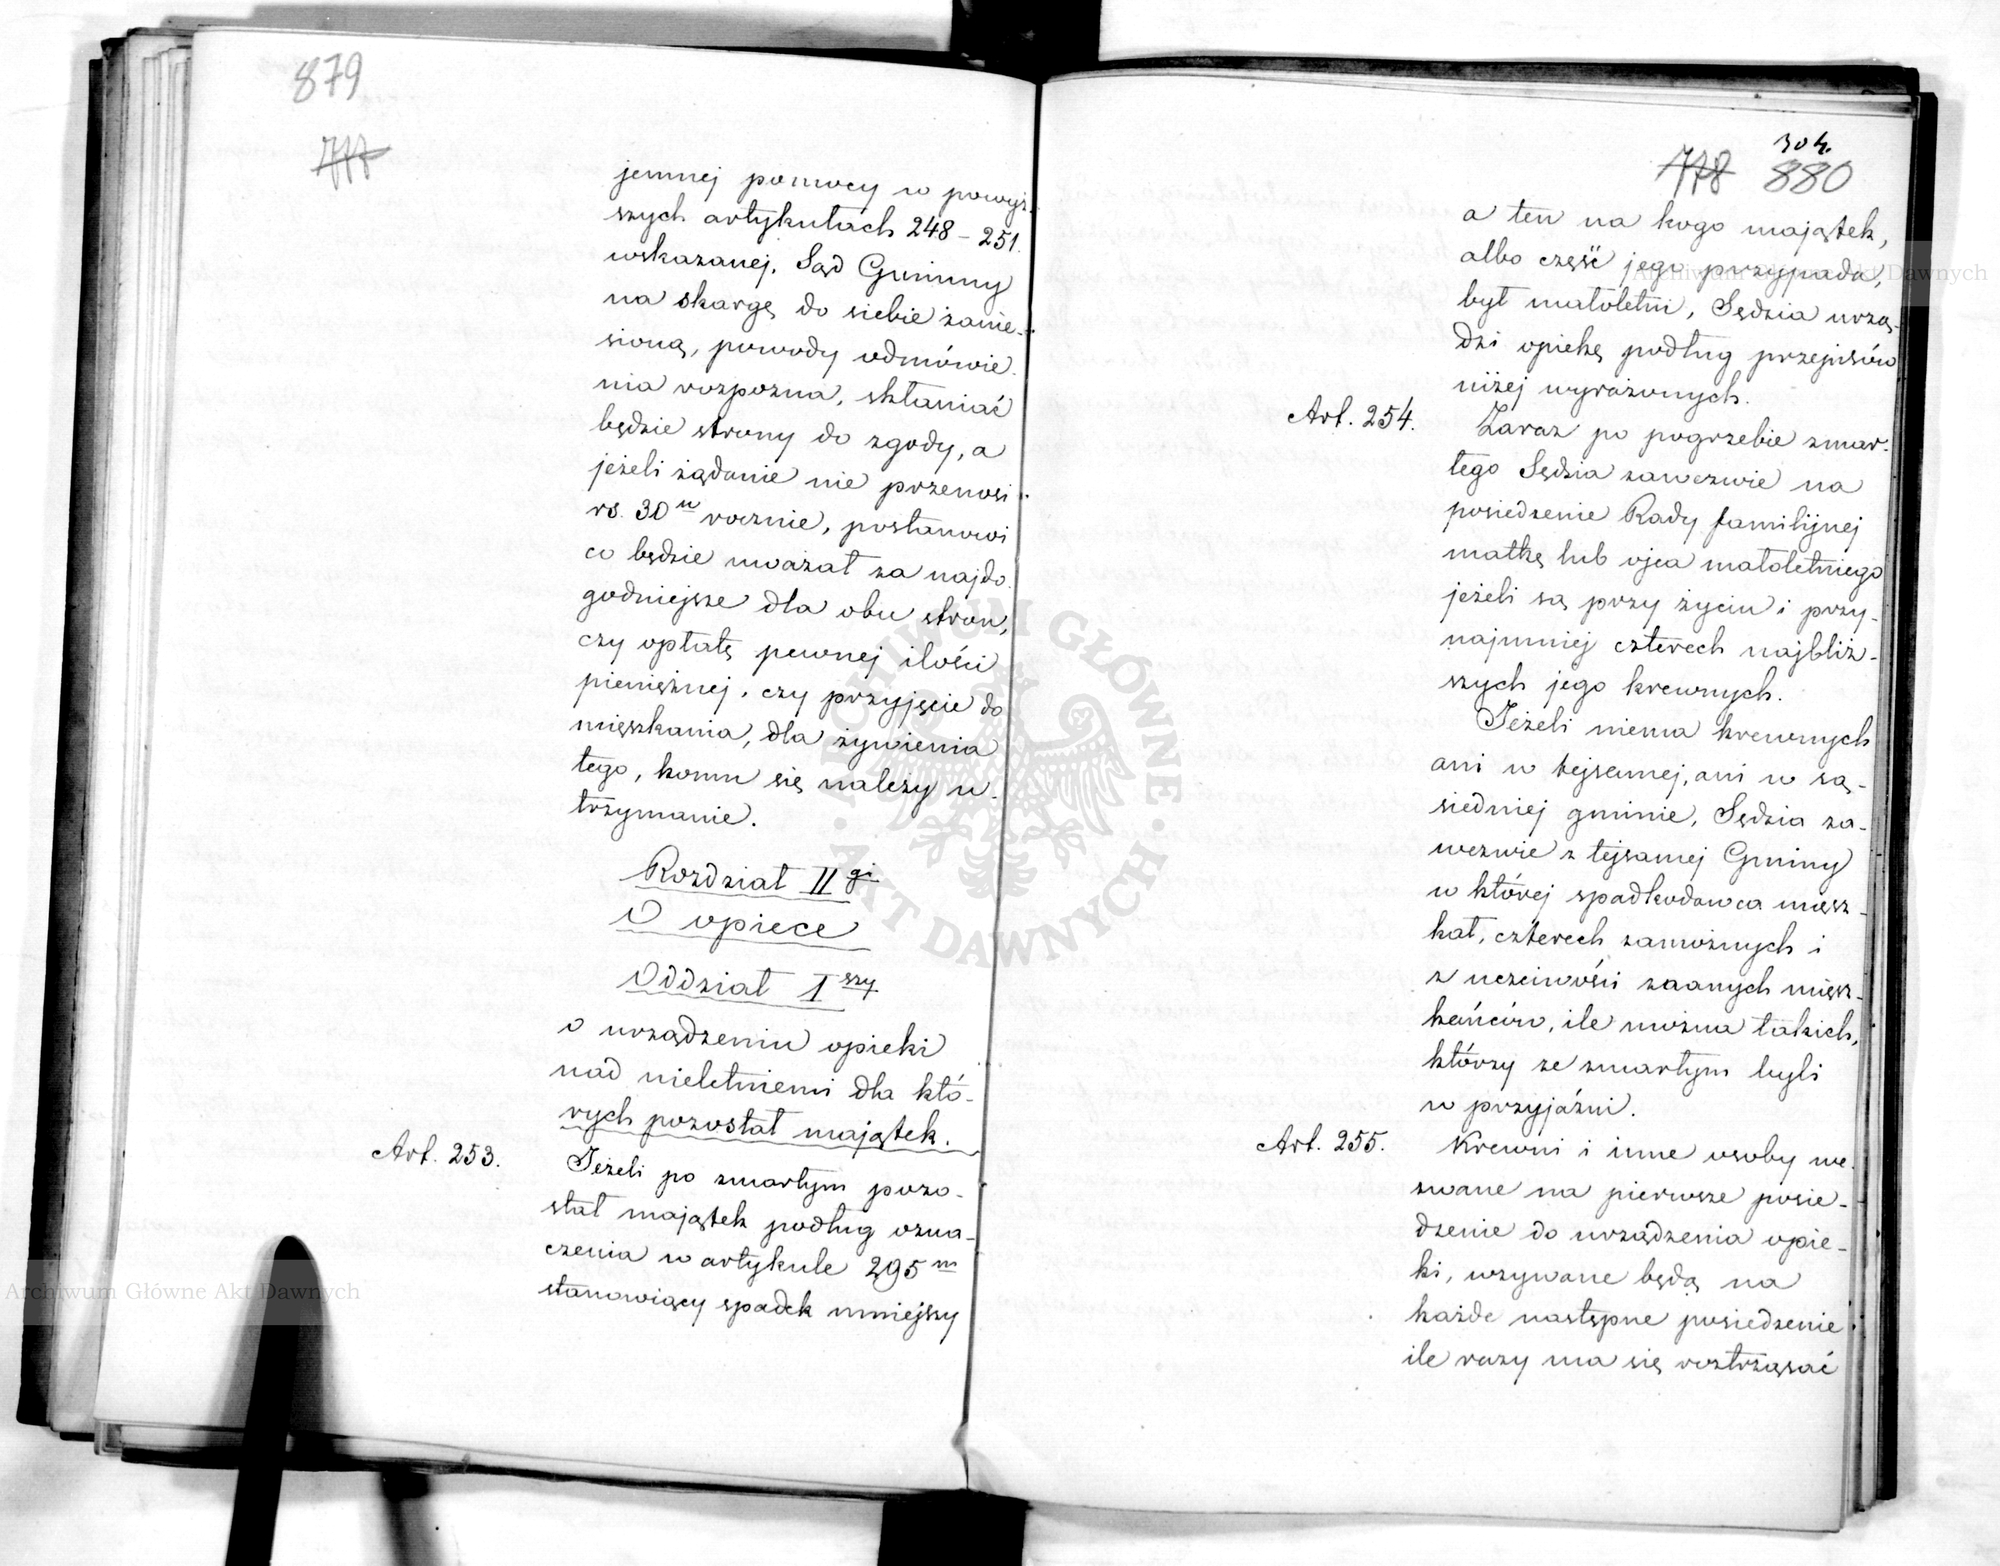 879
777
jemnej pomocy w powyż-
szych artykułach 248 – 251.
wskazanej, Sąd Gminny
na skargę do siebie zanie-
sioną, powody odmówie-
nia rozpozna, skłaniać
będzie strony do zgody, a
jeżeli żądanie nie przenosi
rs. 30 w rocznie, postanowi
co będzie uważał za najdo-
godniejsze dla obu stron,
czy opłatę pewnej ilości
pieniężnej, czy przyjęcie do
mięszkania, dla żywienia
tego, komu się należy u-
trzymanie.
Rozdział II gi
O opiece
Oddział I szy
o urządzeniu opieki
nad nieletniemi dla któ-
rych pozostał majątek.
Art. 253.
Jeżeli po zmarłym pozo-
stał majątek podług ozna-
czenia w artykule 295 m
stanowiący spadek mniejszy
304.
778 880
a ten na kogo majątek,
albo część jego przypada,
był małoletni, Sędzia urzą-
dzi opiekę podług przepisów
niżej wyrażonych.
Art. 254.
Zaraz po pogrzebie zmar-
łego Sędzia zawezwie na
posiedzenie Rady familijnej
matkę lub ojca małoletniego
jeżeli są przy życiu i przy-
najmniej czterech najbliż-
szych jego krewnych.
Jeżeli niema krewnych
ani w tejsamej, ani w są-
siedniej gminie, Sędzia za-
wezwie z tejsamej Gminy
w której spadkodawca mięsz-
kał, czterech zamożnych i
z uczciwości znanych mięsz-
kańców, ile można takich,
którzy ze zmarłym byli
w przyjaźni.
Art. 255.
Krewni i inne osoby we-
zwane na pierwsze posie-
dzenie do urządzenia opie-
ki, wzywane będą na
każde następne posiedzenie
ile razy ma się roztrząsać
Archiwum Główne Akt Dawnych
Archiwum Główne Akt Dawnych
ARCHIWUM GŁÓWNE · AKT DAWNYCH ·